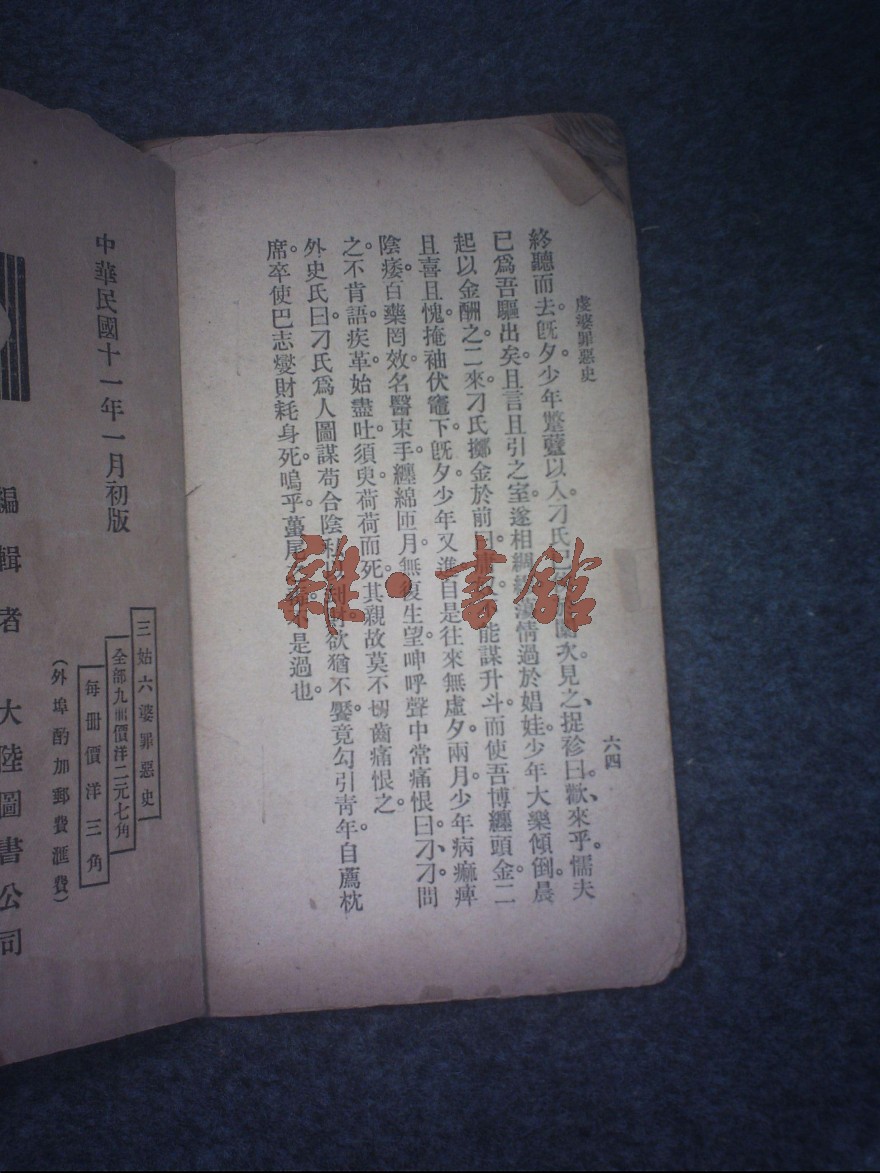 虔婆罪惡史
六四
終聽而去。既夕。少年躄躠以入。刁氏已
次見之、捉袗曰。歡來乎。懦夫
已爲吾驅出矣。且言且引之室。遂相綢
情過於娼娃。少年大樂傾倒。晨
起以金酬之。二來刁氏擲金於前曰
能謀升斗。而使吾博纏頭金。二
且喜且愧。掩袖伏竈下。既夕。少年又進。自是往來無虛夕。兩月。少年病痲痺
陰痿。百藥罔效。名醫束手。纏綿匝月。無復生望。呻呼聲中。常痛恨曰。刁刁。問
之。不肯語。疾革。始盡吐。須臾荷荷而死。其親故莫不切齒痛恨之。
外史氏曰。刁氏爲人圖謀苟合。陰私
欲猶不饜。竟勾引青年。自薦枕
席。卒使巴志燮財耗身死。嗚乎。蠆尾
是過也。
中華民國十一年一月初版
三姑六婆罪惡史
全部九冊價洋二元七角
每册價洋三角
（外埠酌加郵費滙費）
編輯者 大陸圖書公司
雜·書館